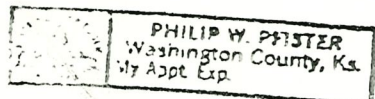 PHILIP W. PFISTER
Washington County, Ks.
My Appt. Exp.